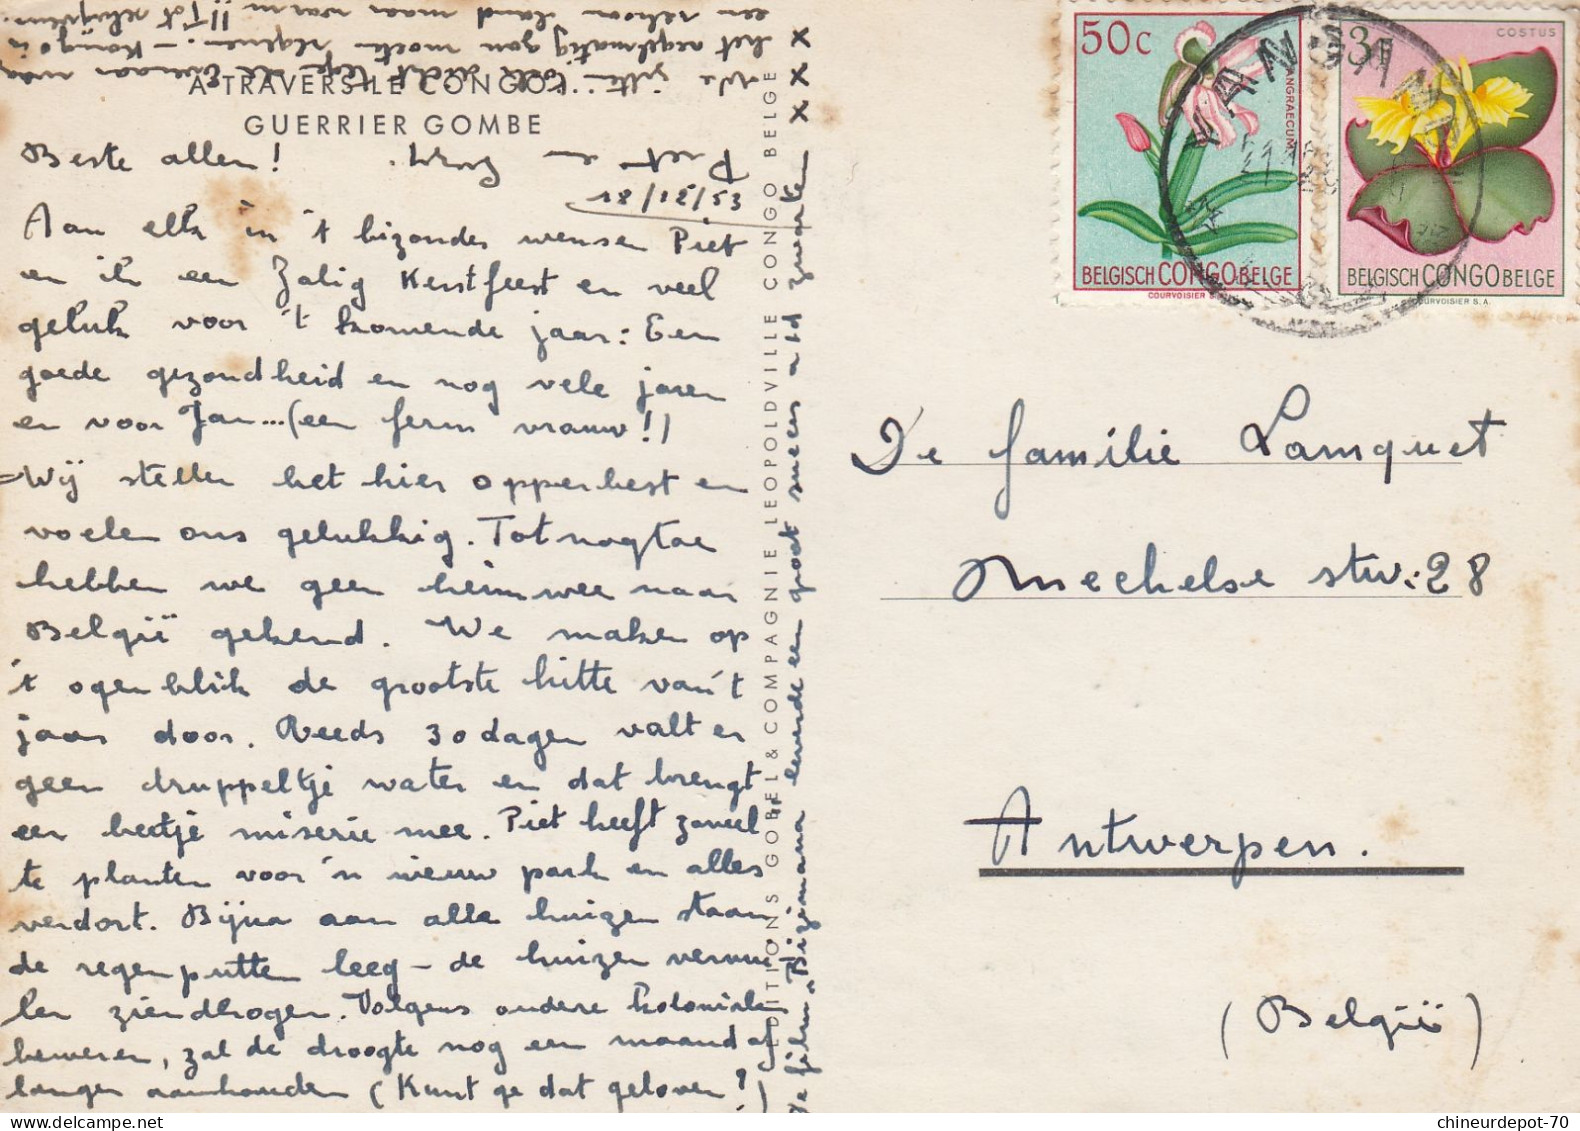 A TRAVERS LE CONGO...
GUERRIER GOMBE
Beste allen!
18/12/53
Aan elk in 't bizonder wensen Piet
en ik een Zalig Kerstfeest en veel
geluk voor 't komende jaar: Een
goede gezondheid en nog vele jaren
en voor Jan...(een ferm vrouw!)
Wij stellen het hier opperbest en
voelen ons gelukkig. Tot nogtoe
hebben we geen heimwee naar
België gekend. We maken op
't ogenblik de grootste hitte van 't
jaar door. Reeds 30 dagen valt er
geen druppeltje water en dat brengt
een beetje miserie mee. Piet heeft zoveel
te planten voor 'n nieuw park en alles
verdort. Bijna aan alle huizen staan
de regenputten leeg - de huizen
ziendhogen. Volgens andere kolonialen
beweren, zal de droogte nog een maand of
langer aanhouden (Kunt ge dat geloven?)
De film "Bizimana" eende een groot succes
zwarten XXX
het regelmatig gaan moeten regenen. - Kongo is
een schoon land maar warm!! Tot schrijvens.
Piet en
EDITIONS GOBEL & COMPAGNIE LEOPOLDVILLE CONGO BELGE
50c
ANGRAECUM
BELGISCH CONGO BELGE
COURVOISIER S.A.
3f
COSTUS
BELGISCH CONGO BELGE
COURVOISIER S.A.
YANGAMBI
De familie Lamquet
Mechelse stw: 28
Antwerpen.
(België)
chineurdepot-70